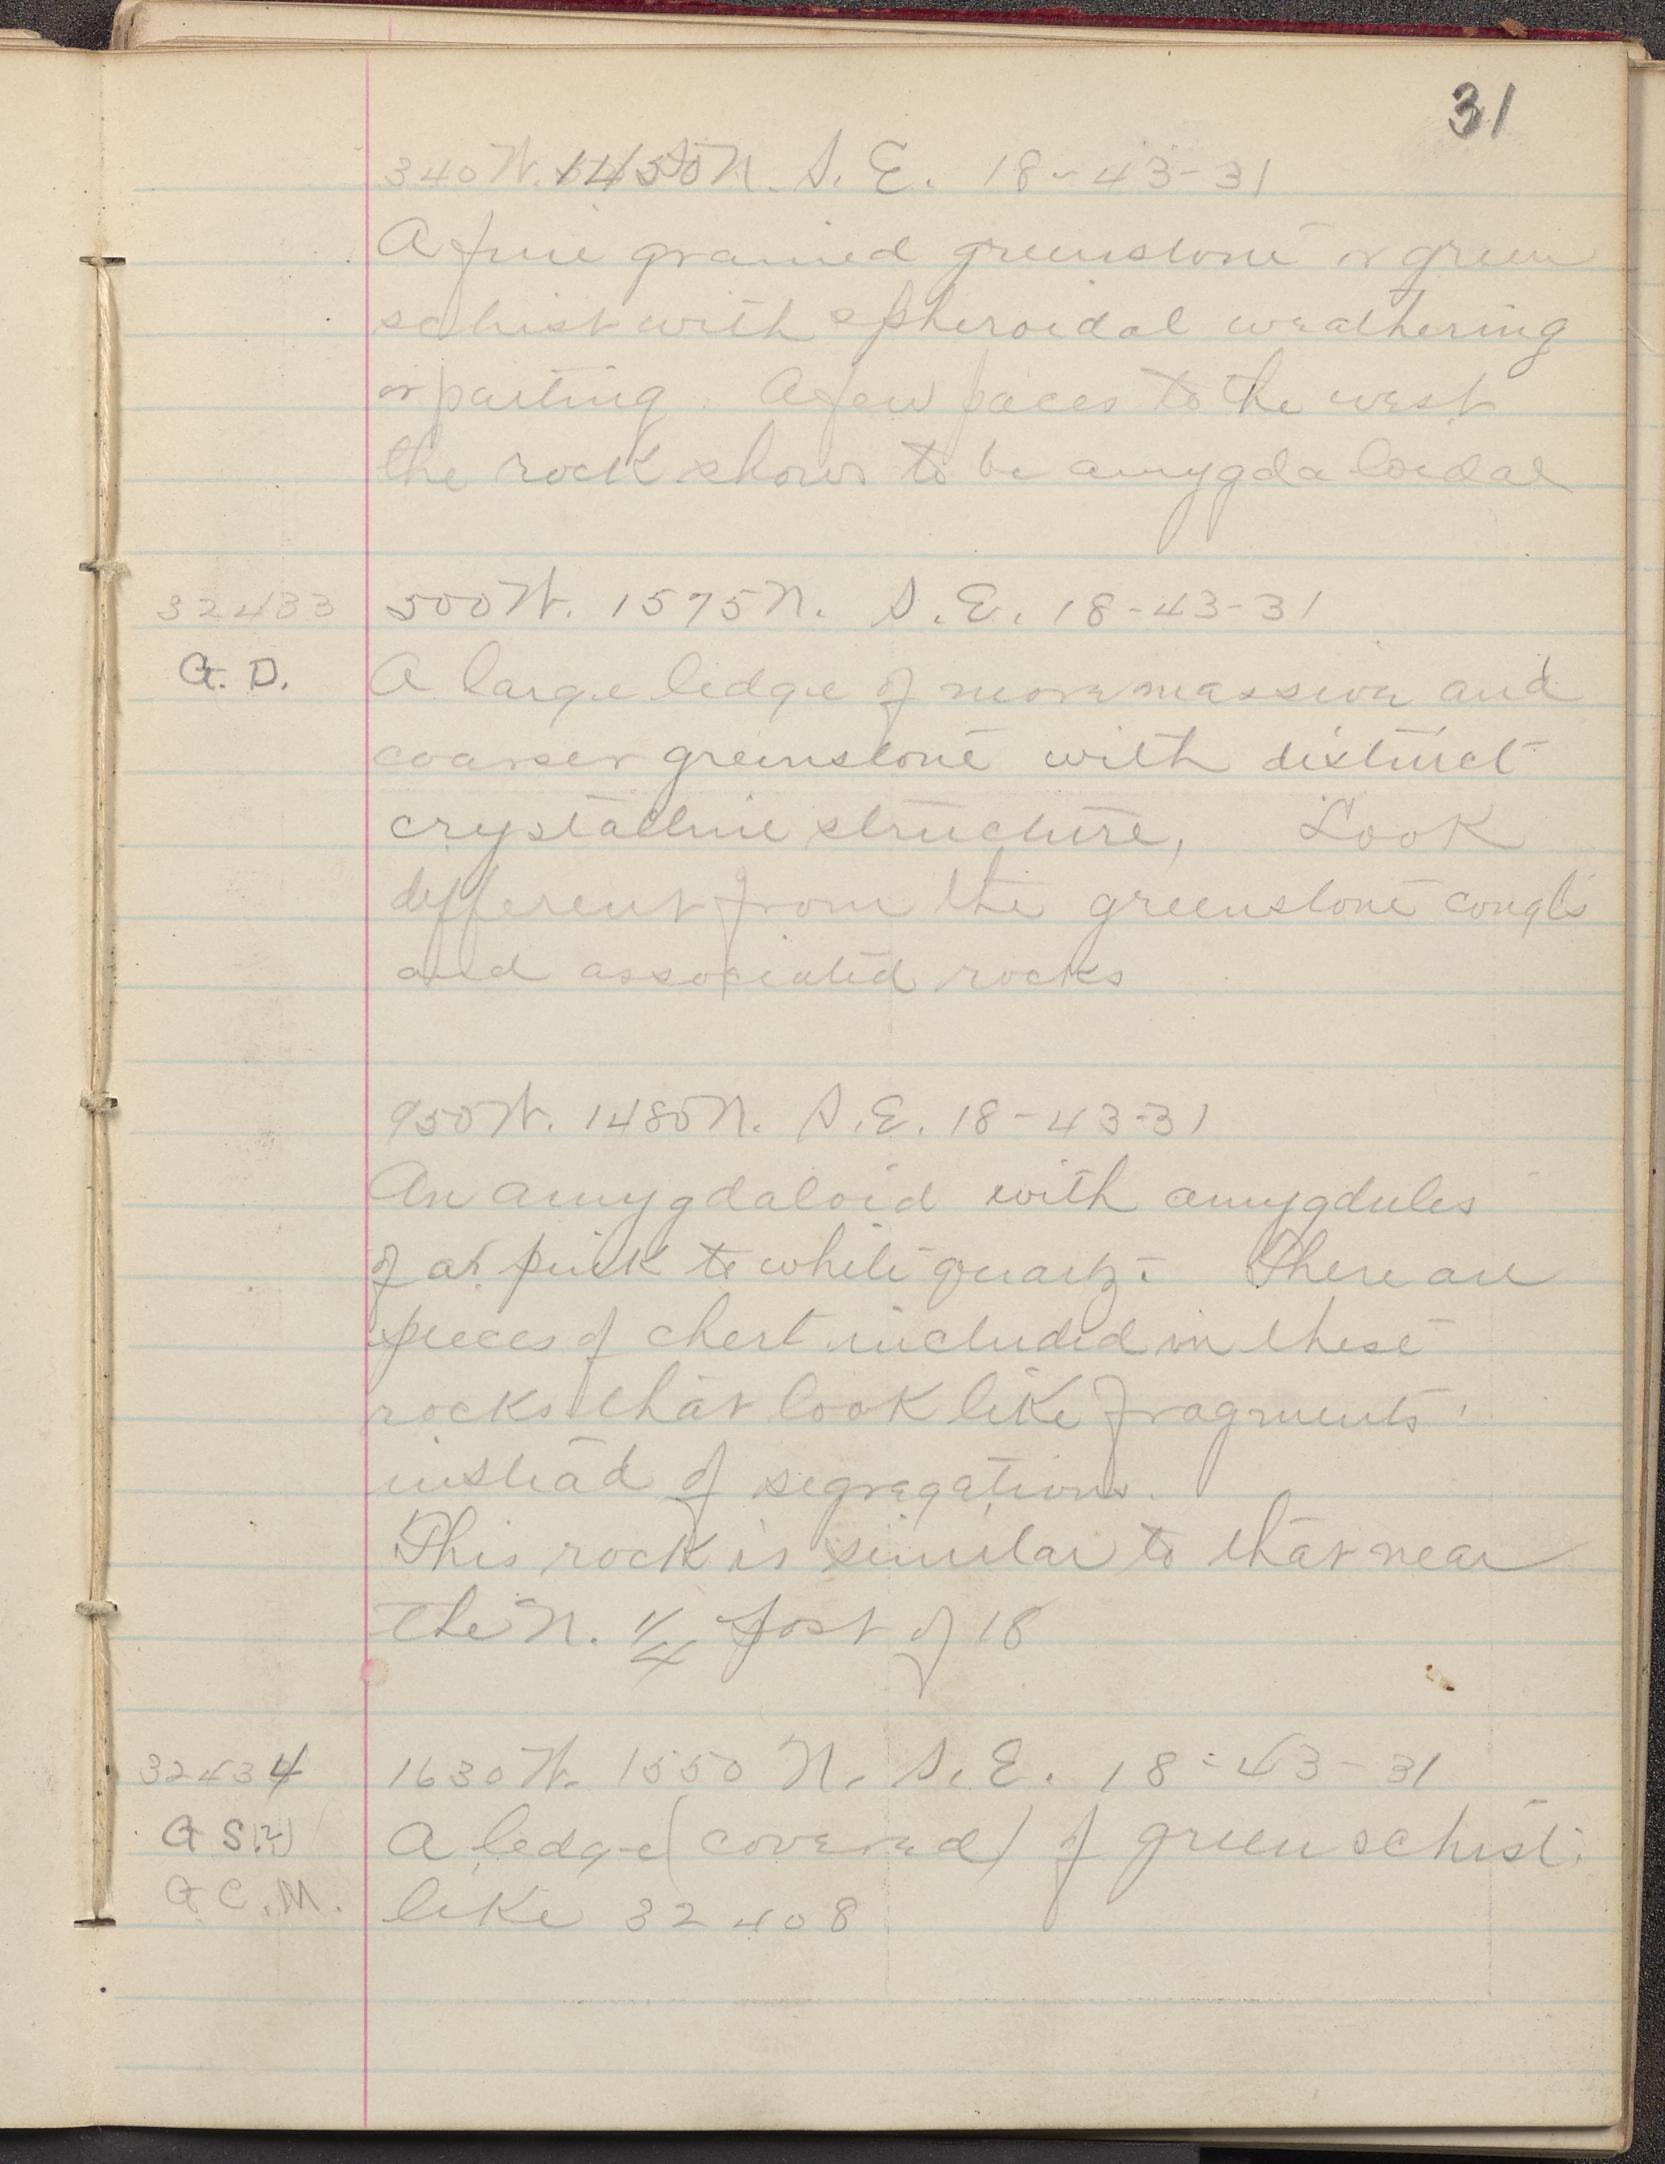 31
340 W. 1450 N. S. E. 18-43-31
A fine grained greenstone or green
schist with spheroidal weathering
or parting. A few paces to the west
the rock shows to be amygdaloidal
32433 500 W. 1575 N. S. E. 18-43-31
G. D. A large ledge of more massive and
coarser greenstone with distinct
crystalline structure, Look
different from the greenstone congl's
and associated rocks
950 W. 1480 N. S. E. 18-43-31
An amygdaloid with amygdules
of a pink to white quartz. There are
pieces of chert included in these
rocks that look like fragments
instead of segregations.
This rock is similar to that near
the N. 1/4 post of 18
32434 1630 W. 1550 N. S. E. 18-43-31
G S (?) A ledge (covered) of green schist
G C. M. like 32408